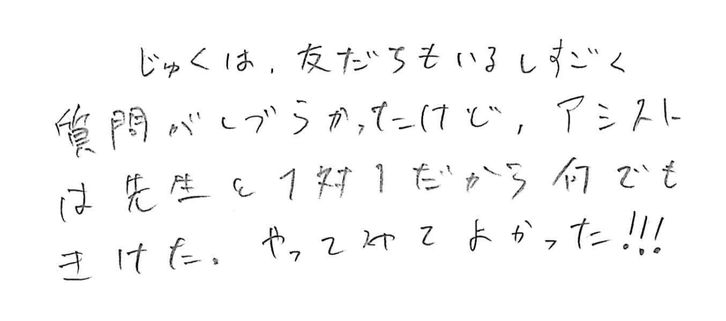 じゅくは、友だちもいるしすごく
質問がしづらかったけど、アシスト
は先生と1対1だから何でも
きけた。やってみてよかった!!!